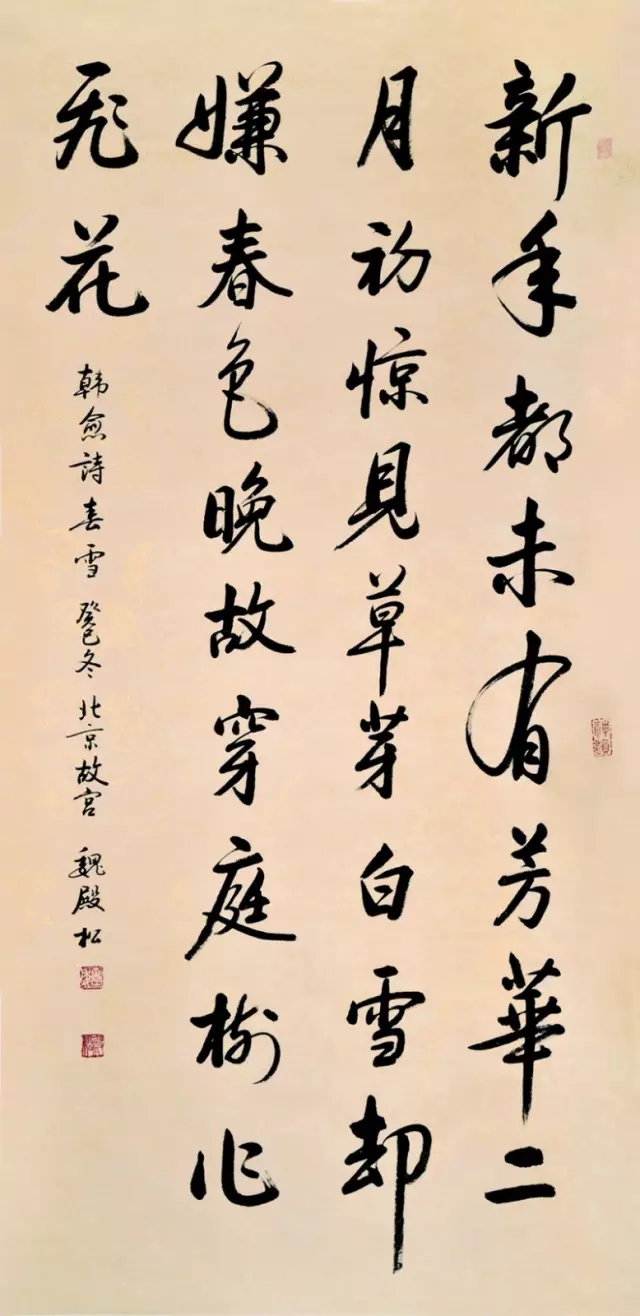 新年都未有芳華二
月初惊見草芽白雪却
嫌春色晚故穿庭樹作
飛花
韩愈詩春雪 癸巳冬 北京故宫 魏殿松